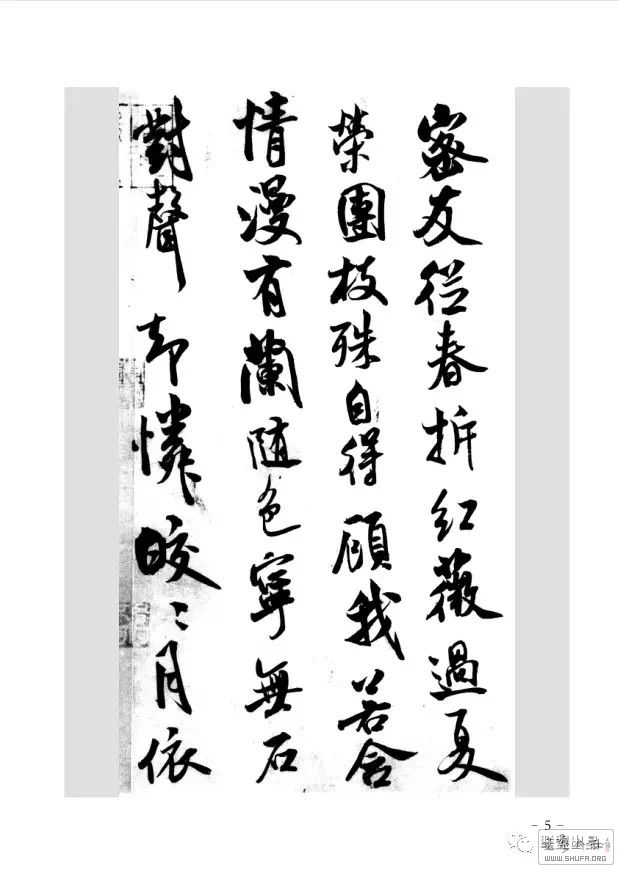 密友從春拆紅薇過夏
榮團枝殊自得顧我若含
情漫有蘭随色寧無石
對聲却憐皎〻月依
- 5 -
WWW.SHUFA.ORG